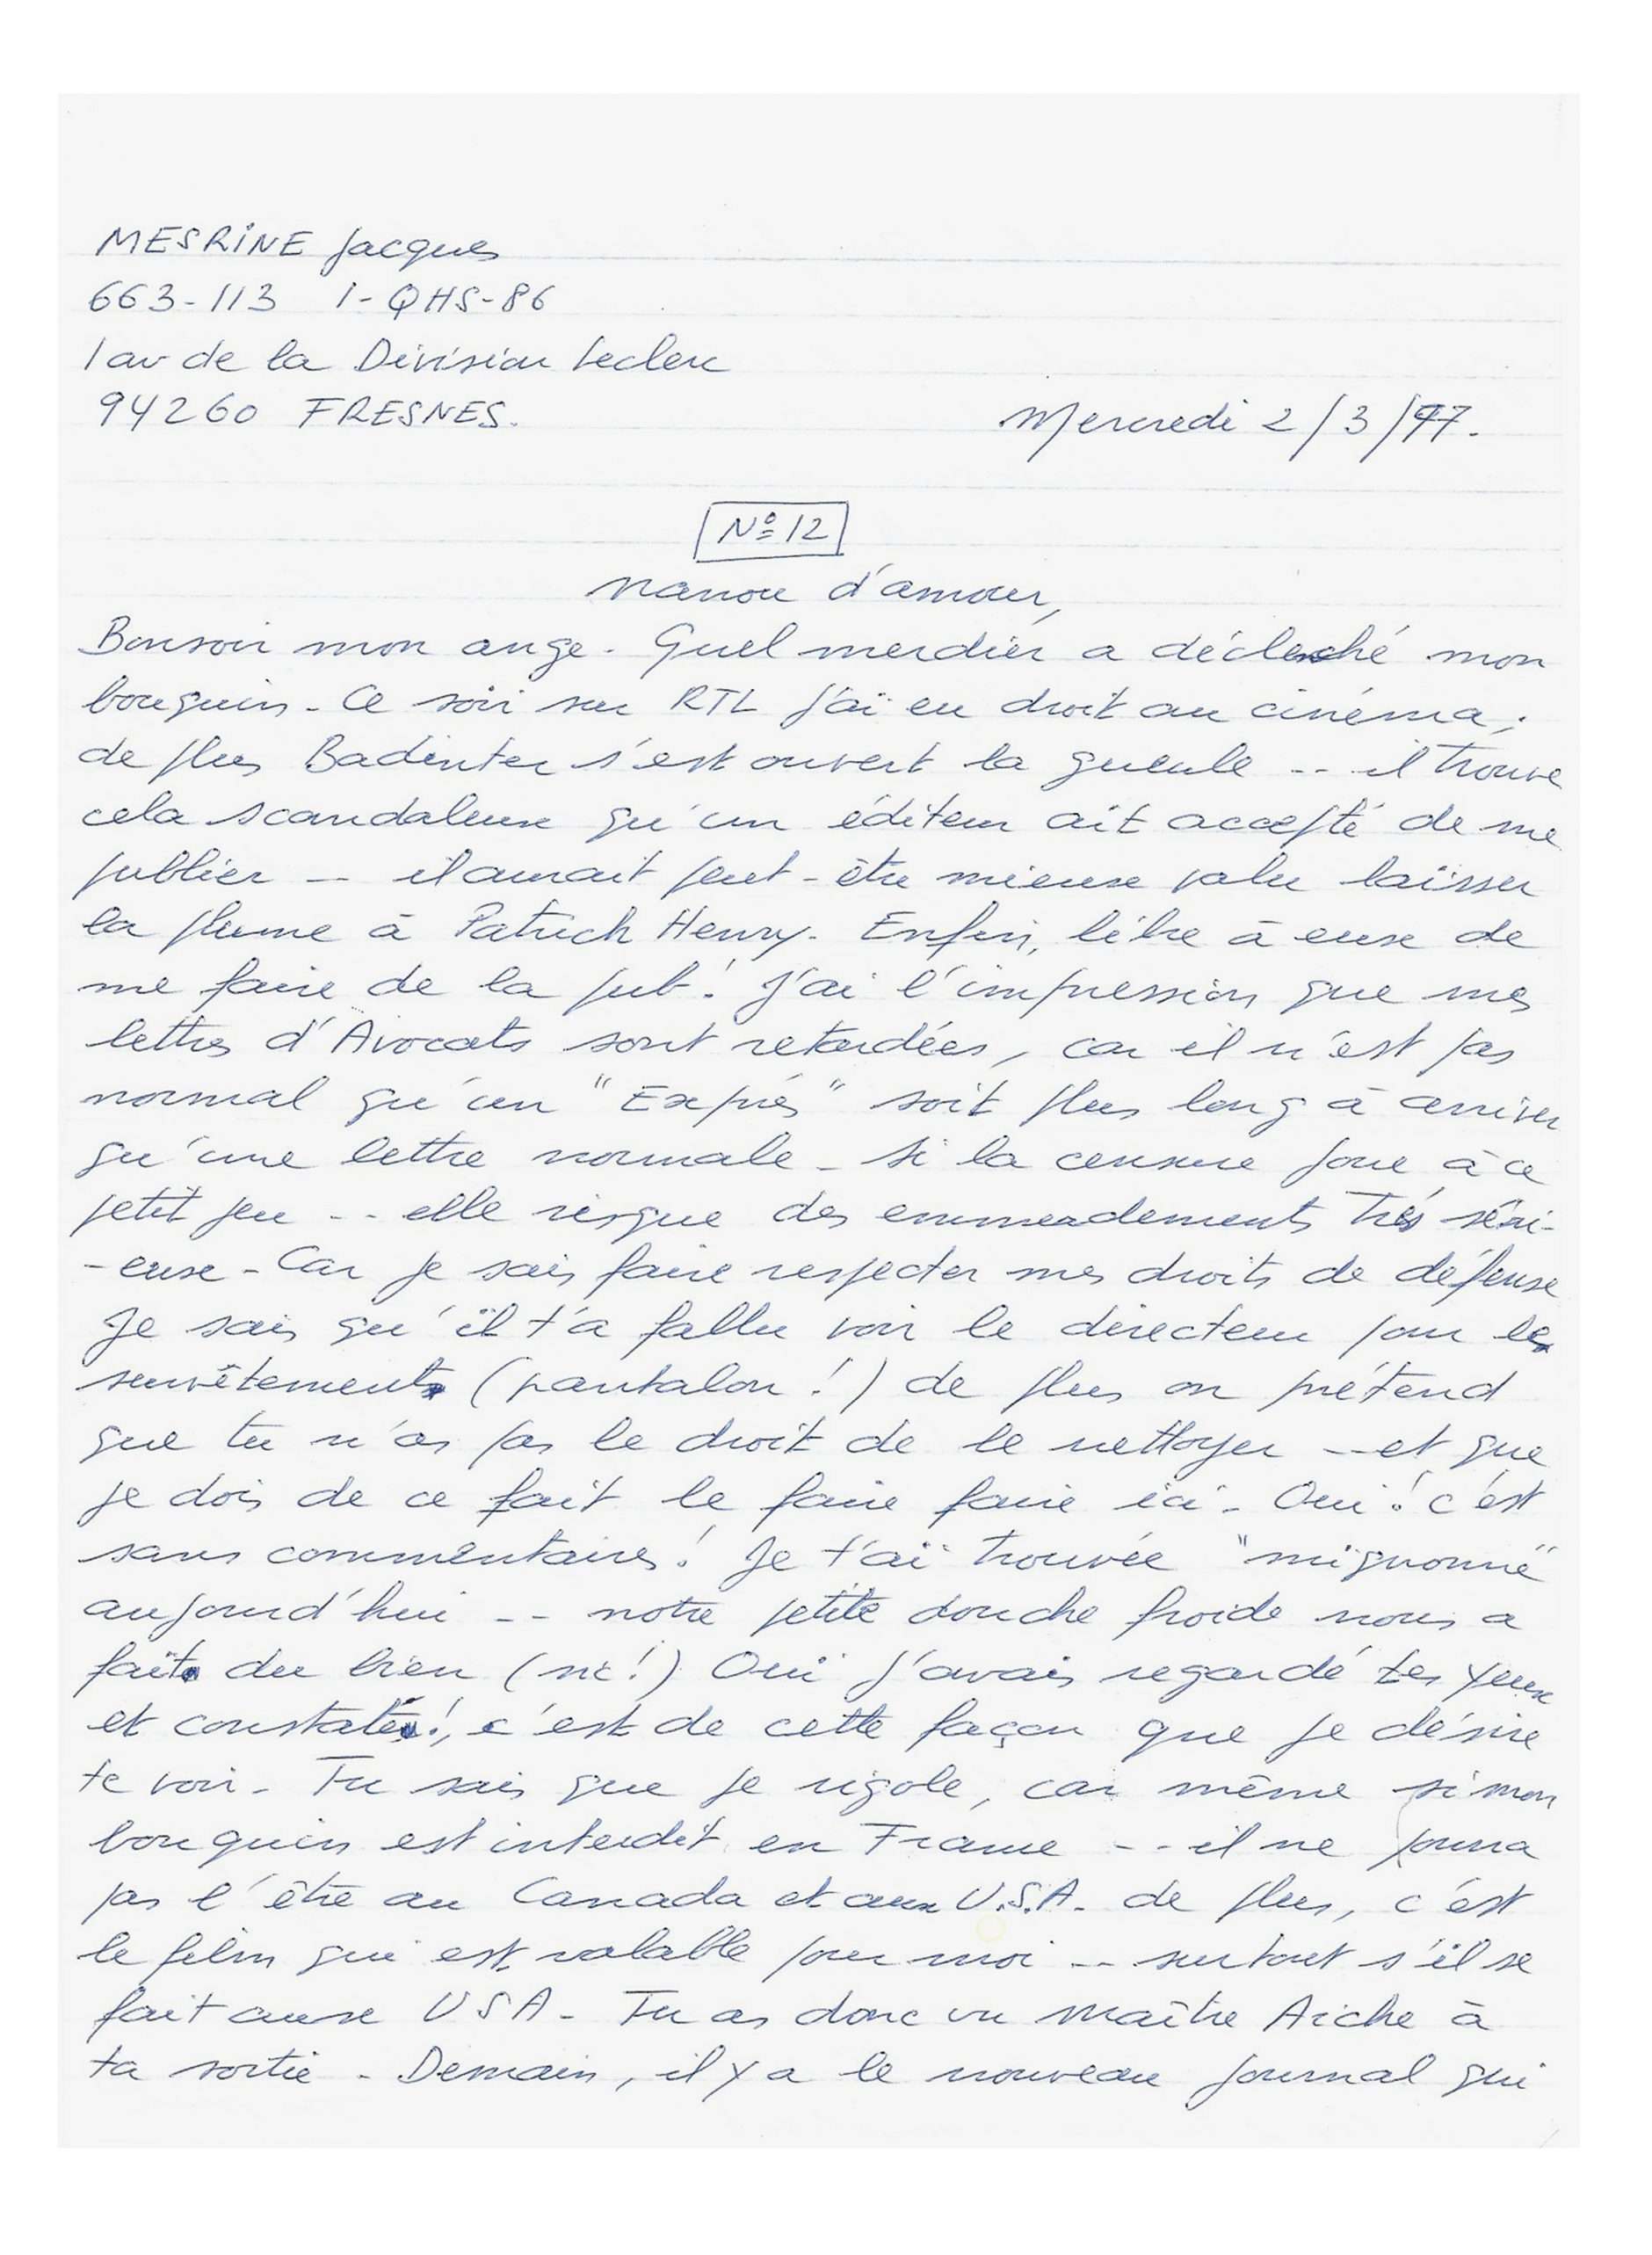 MESRINE Jacques
663-113 1-QHS-86
1 av de la Division Leclerc
94260 FRESNES.
Mercredi 2/3/77.
Nº 12
Nanou d'amour,
Bonsoir mon ange. Quel merdier a déclenché mon
bouquin - Ce soir sur RTL j'ai eu droit au cinéma ;
de plus Badinter s'est ouvert la gueule -- il trouve
cela scandaleux qu'un éditeur ait accepté de me
publier -- il aurait peut-être mieux valu laisser
la plume à Patrick Henry. Enfin, libre à eux de
me faire de la pub ! J'ai l'impression que mes
lettres d'Avocats sont retardées, car il n'est pas
normal qu'un "Exprès" soit plus long à arriver
qu'une lettre normale - Si la censure joue à ce
petit jeu -- elle risque des emmerdements très séri-
-eux - Car je sais faire respecter mes droits de défense
Je sais qu'il t'a fallu voir le directeur pour le
survêtement (pantalon !) de plus on prétend
que tu n'as pas le droit de le nettoyer -- et que
je dois de ce fait le faire faire ici - Oui ! c'est
sans commentaires ! Je t'ai trouvée "mignonne"
aujourd'hui -- notre petite douche froide nous a
fait du bien (sic !) Oui j'avais regardé tes yeux
et constaté !, c'est de cette façon que je désire
te voir - Tu sais que je rigole, car même si mon
bouquin est interdit en France -- il ne pourra
pas l'être au Canada et aux U.S.A. de plus, c'est
le film qui est valable pour moi -- surtout s'il se
fait aux USA - Tu as donc vu Maître Aiche à
ta sortie - Demain, il y a le nouveau journal qui